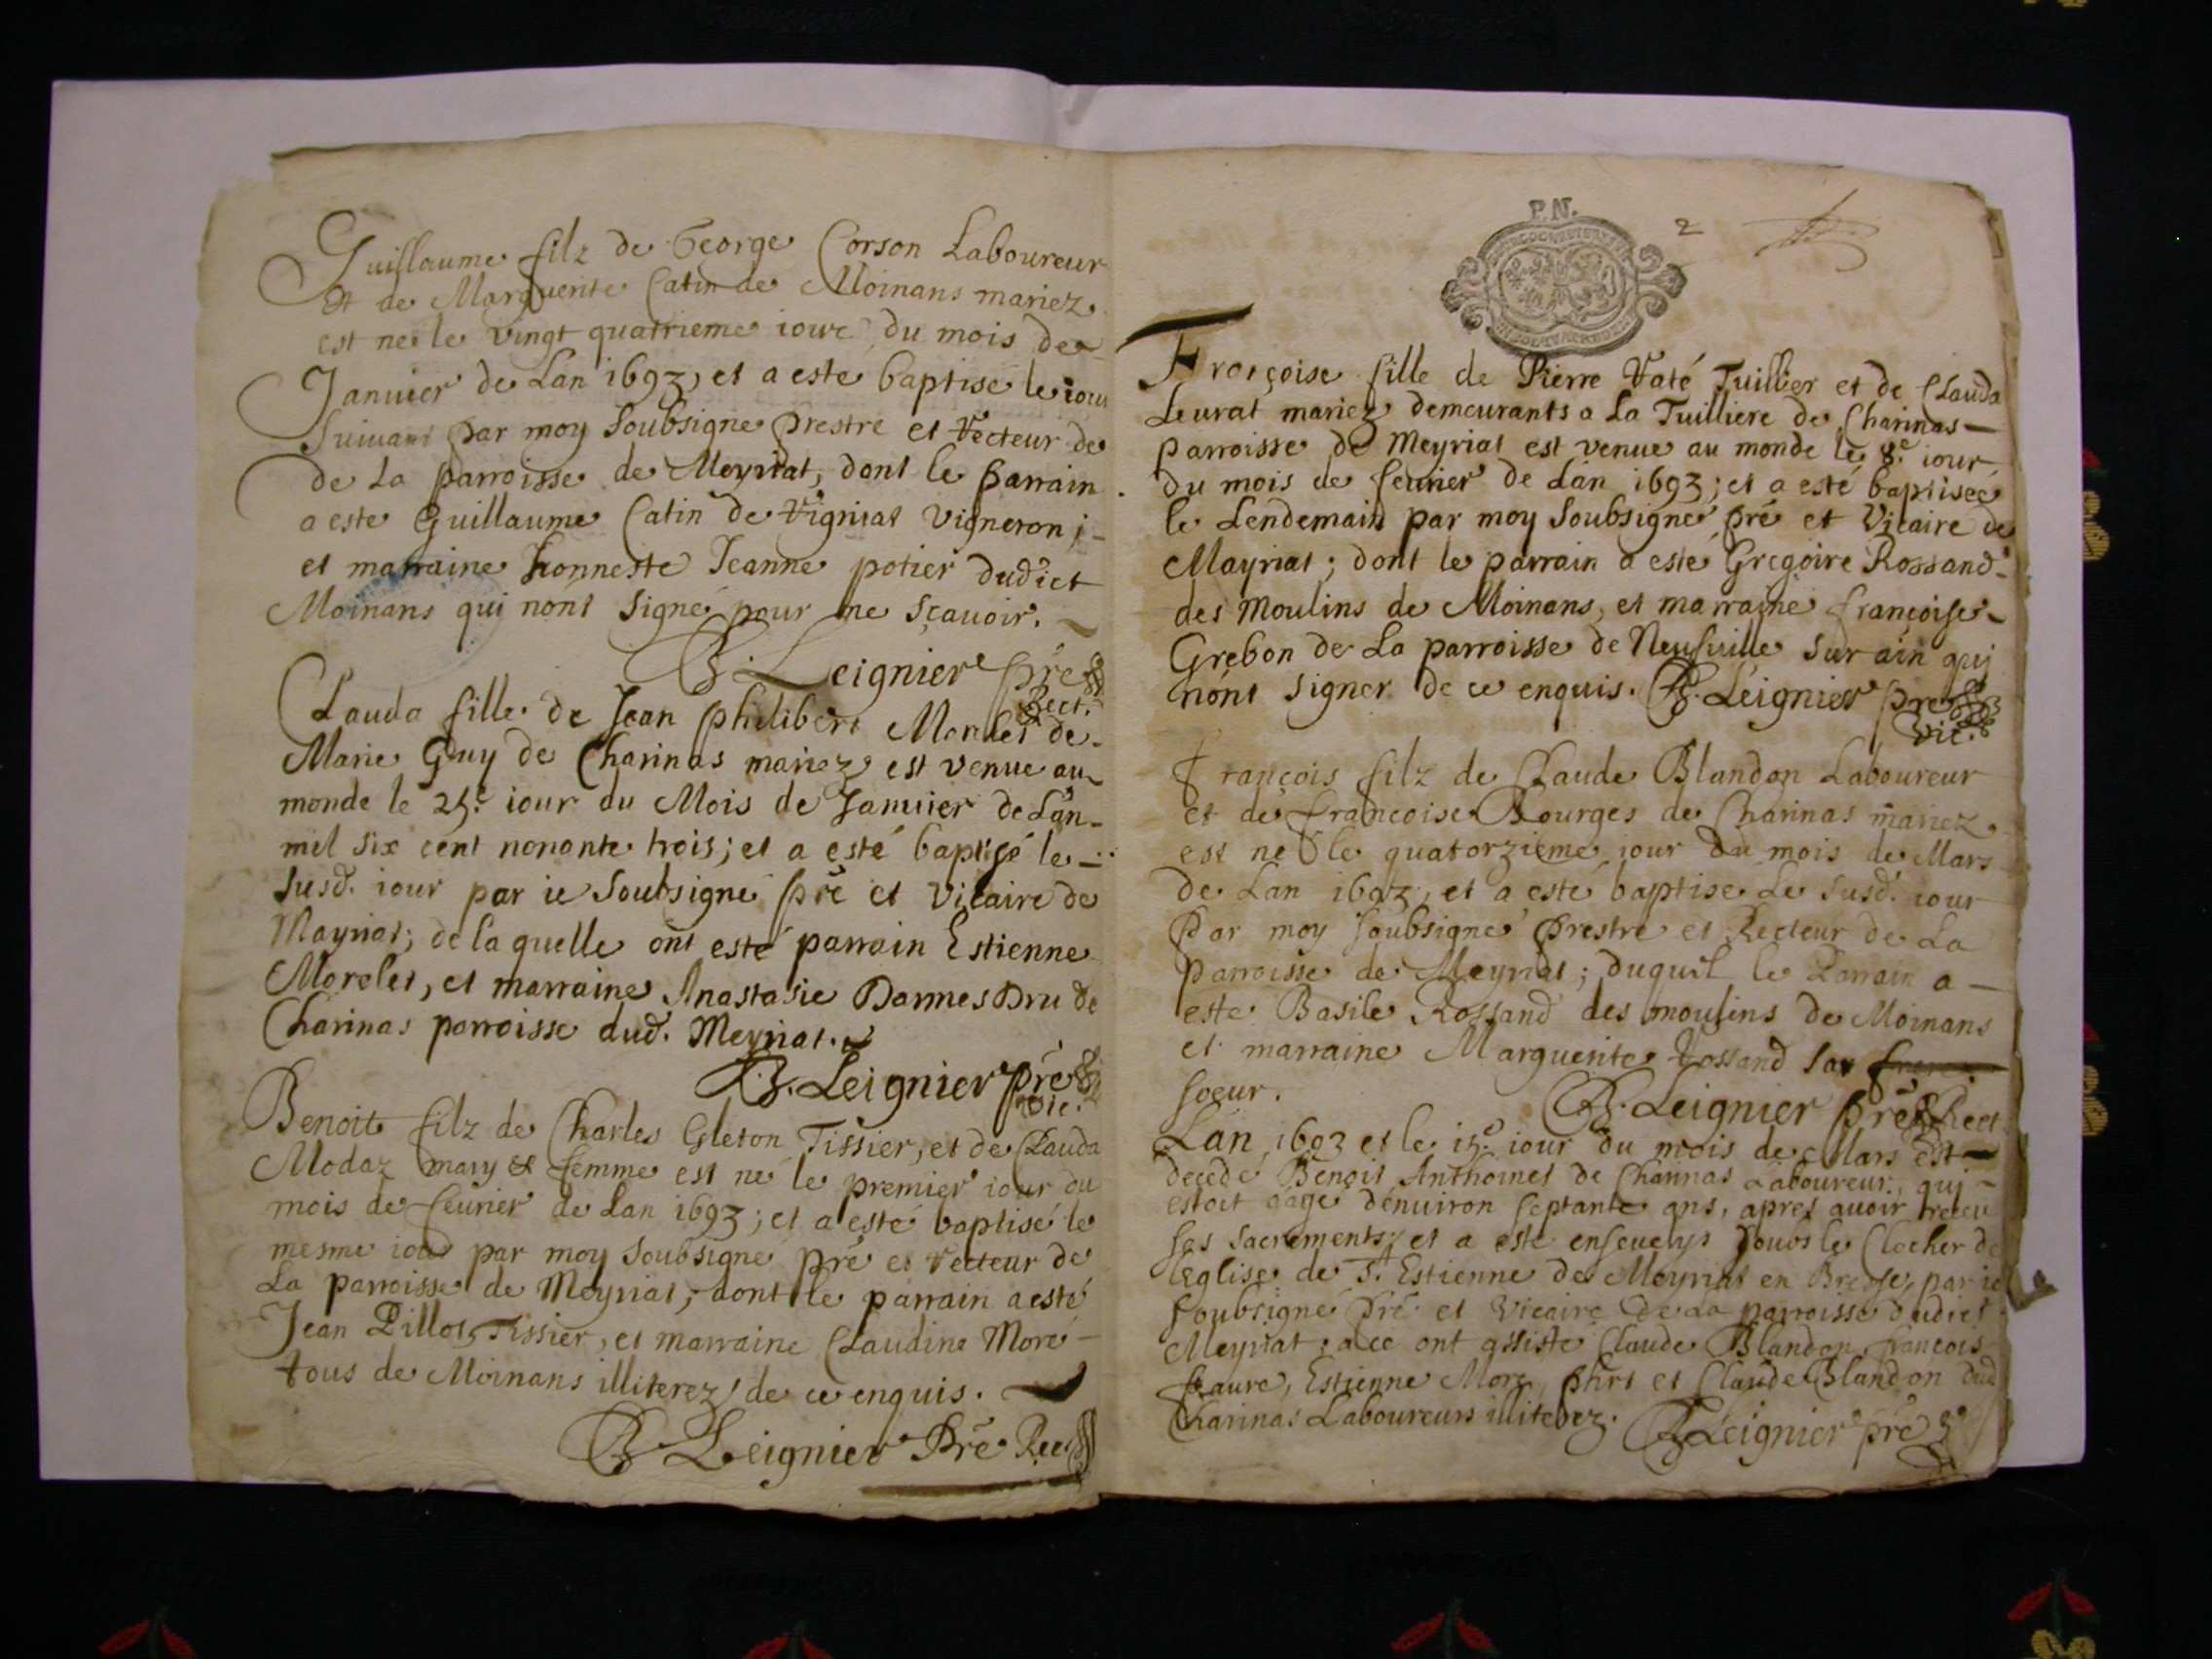 Guillaume filz de George Corson Laboureur
et de Marguerite Catin de Moinans mariez
est ne le vingt quatrieme iour du mois de
Januier de Lan 1693, et a este baptise le iour
suiuant par moy soubsigne prestre et recteur de
de la parroisse de Meyriat, dont le parrain
a este Guillaume Catin de Vigniat vigneron ;
et marraine honneste Jeanne potier dudict
Moinans qui nont signé pour ne sçauoir.
B. Leignier pre
Rect.
Clauda fille de Jean philibert de
Marie Guy de Charinas mariez est venue au
monde le 25e iour du Mois de Januier de Lan
mil six cent nonante trois; et a esté baptisé le
susd. iour par ie soubsigné pre et vicaire de
Mayriat; de la quelle ont esté parrain Estienne
Morelet, et marraine Anastasie DarmesDru de
Charinas parroisse dud. Meyriat.
B. Leignier pre
vic.
Benoit filz de Charles Gleton Tissier, et de Clauda
Modaz mary & femme est né le premier iour du
mois de feurier de Lan 1693; et a esté baptisé le
mesme iour par moy soubsigne pre et recteur de
La parroisse de Meyriat; dont le parrain a esté
Jean Pillot Tissier, et marraine Claudine Moré
tous de Moinans illiterez de ce enquis.
B. Leignier Pre Rec
P.N.
2
Françoise fille de Pierre Vaté Tuillier et de Clauda
Leurat mariez demeurants a La Tuilliere de Charinas
parroisse de Meyriat est venue au monde le 8e iour
du mois de feurier de Lan 1693; et a esté baptiseé
le Lendemain par moy soubsigné pre et Vicaire de
Mayriat; dont le parrain a esté Gregoire Rossand
des Moulins de Moinans, et marraine françoise
Grebon de La parroisse de Neufuille sur ain qui
nont signer de ce enquis. B. Leignier pre
Vic.
François filz de Claude Blandon Laboureur
et de françoise Bourges de Charinas mariez
est né le quatorzieme iour du mois de Mars
de Lan 1693, et a esté baptise le susd. iour
Par moy soubsigné prestre et Recteur de La
parroisse de Meyriat; duquil le Parrain a
este Basile Rossand des moulins de Moinans
et marraine Marguerite Rossand sa
soeur.
B. Leignier pre Rect
Lan 1693 et le 15e iour du mois de Mars est
decedé Benoit Anthoinet de Charinas Laboureur, qui
estoit aage denuiron septante ans, apres auoir receu
ses sacrements; et a este enseuelys soubs le Clocher de
leglise de St. Estienne de Meyriat en Bresse, par ie
soubsigné pre et vicaire de la parroisse dudict
Meyriat; a ce ont assisté Claude Blandon, francois
faure, Estienne More, phrt et Claude Blandon dud
Charinas Laboureurs illiterez. B. Leignier pre